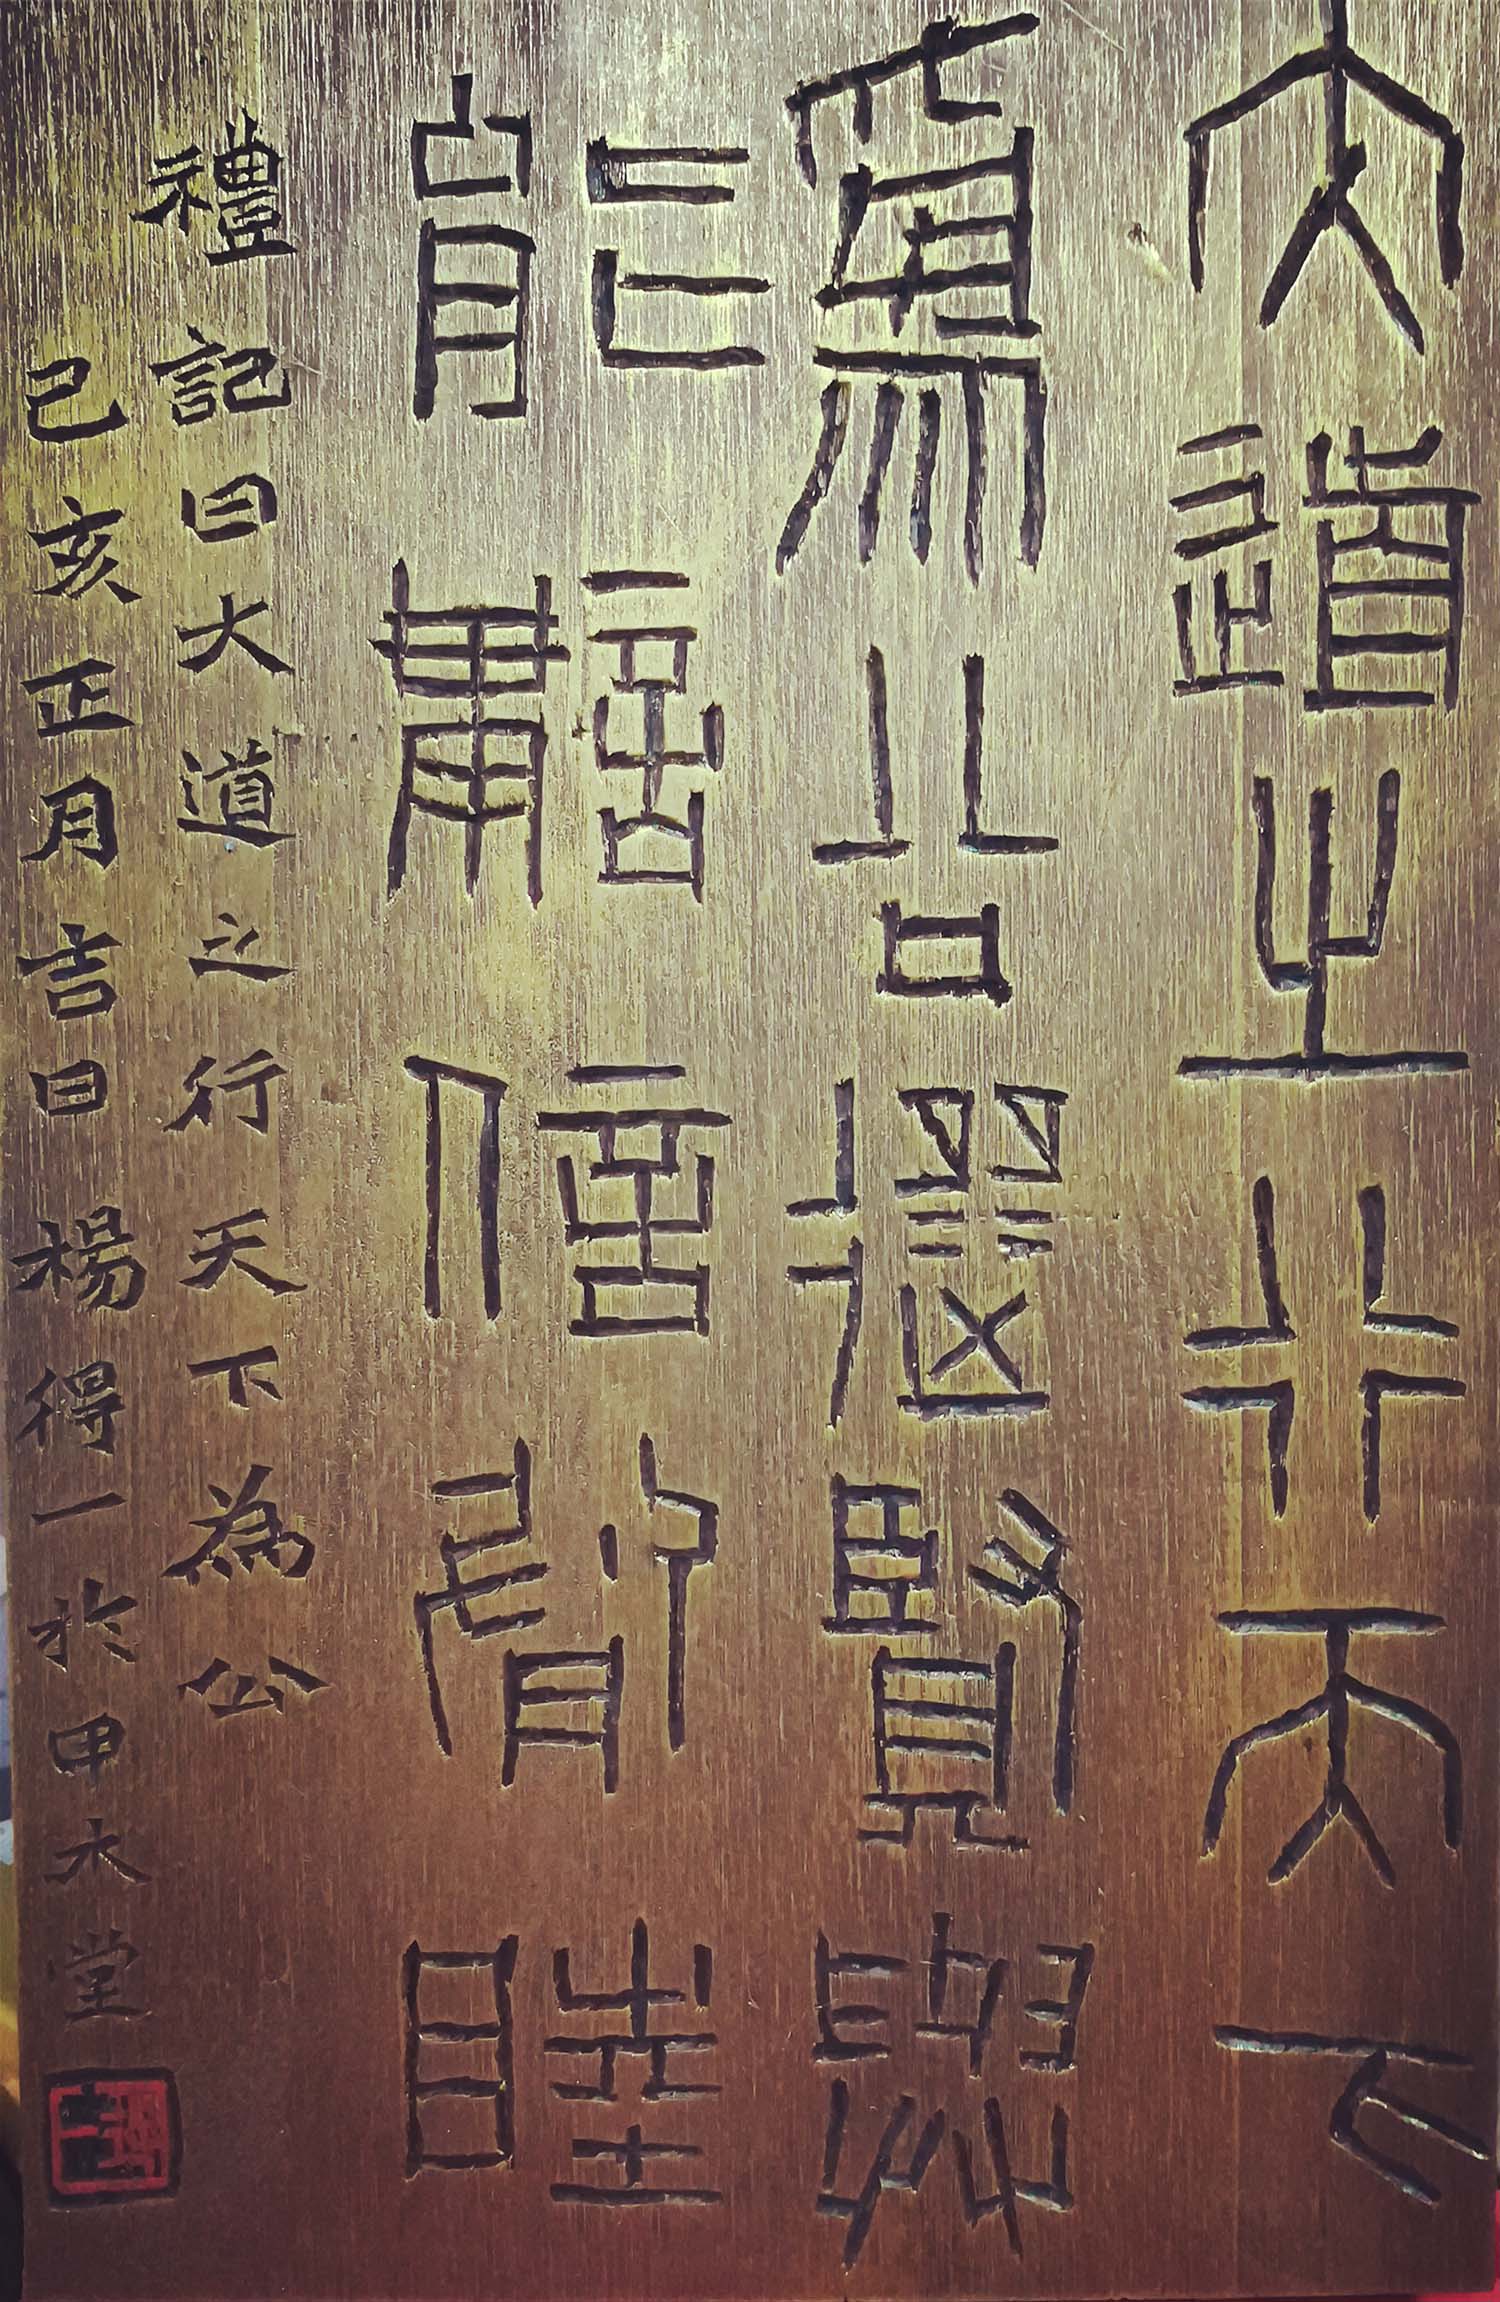 大道之行天下
為公選賢與
能講信脩睦
禮記曰大道之行天下為公
己亥正月吉日楊得一於甲木堂